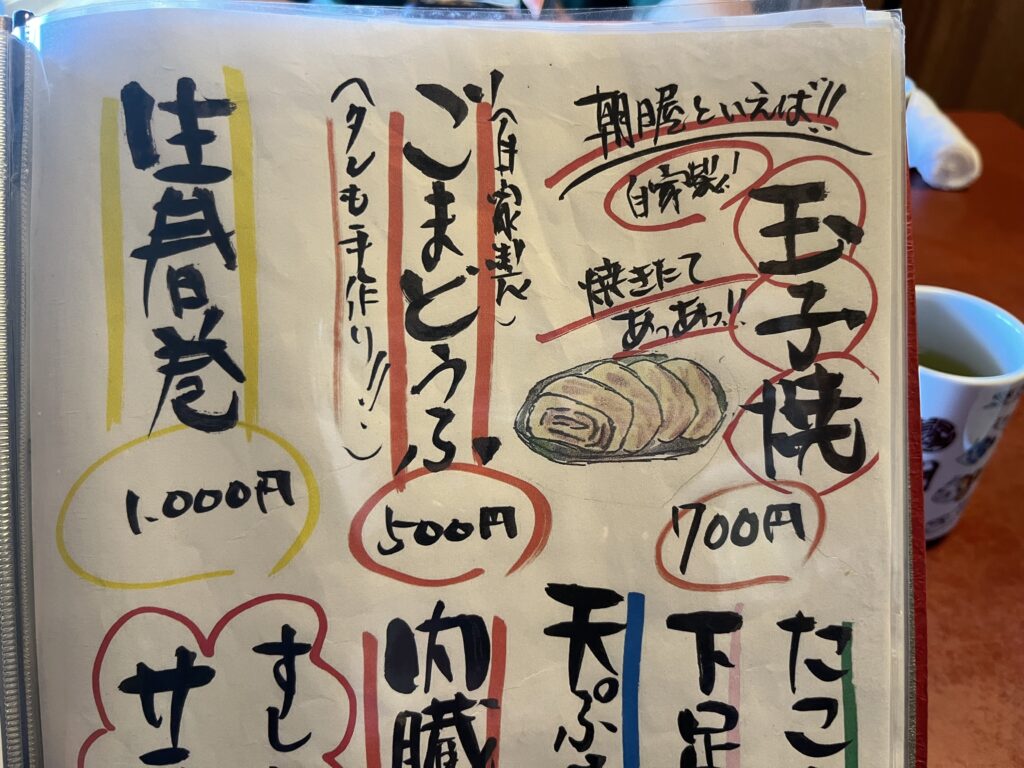 朝日屋といえば!!
自家製!!
玉子焼
焼きたて
あつあつっ!!
700円
(自家製)
ごまどうふ
(タレも手作り!!)
500円
生春巻
1.000円
たこ
下足
天ぷら
内臓
すし
サ